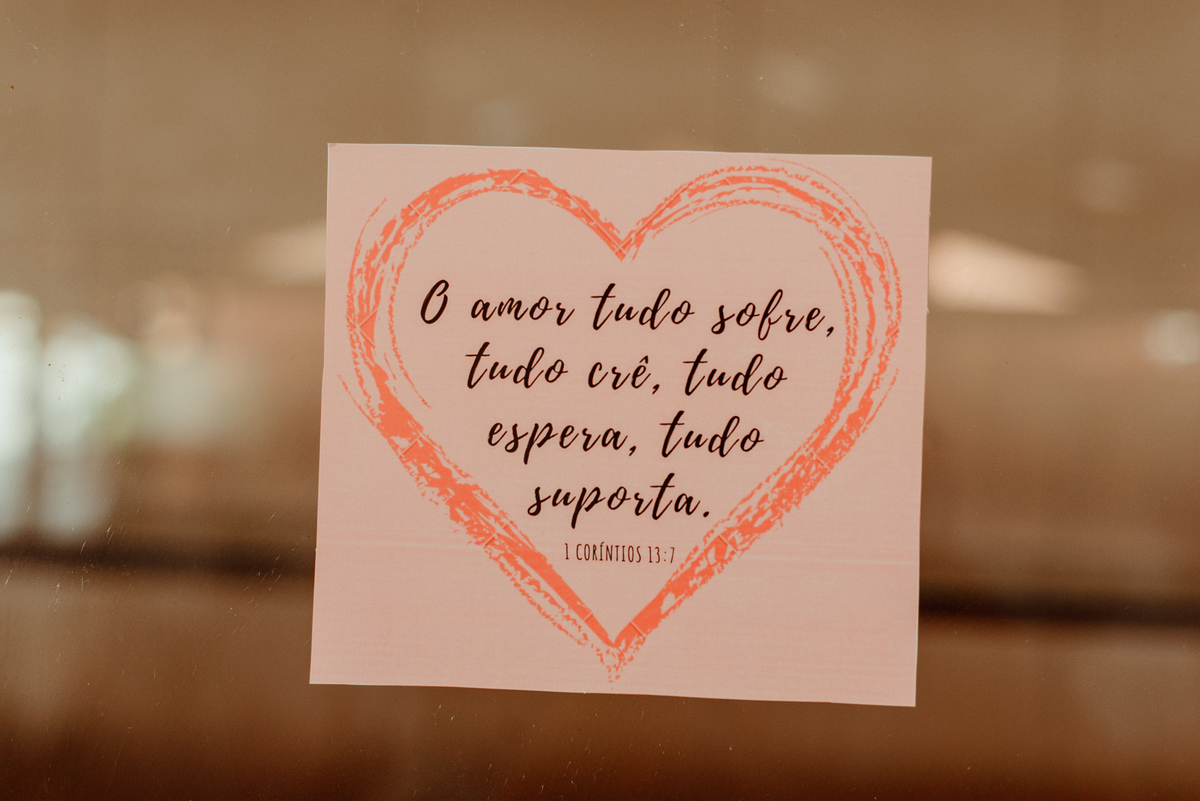 O amor tudo sofre,
tudo crê, tudo
espera, tudo
suporta.
1 CORÍNTIOS 13:7